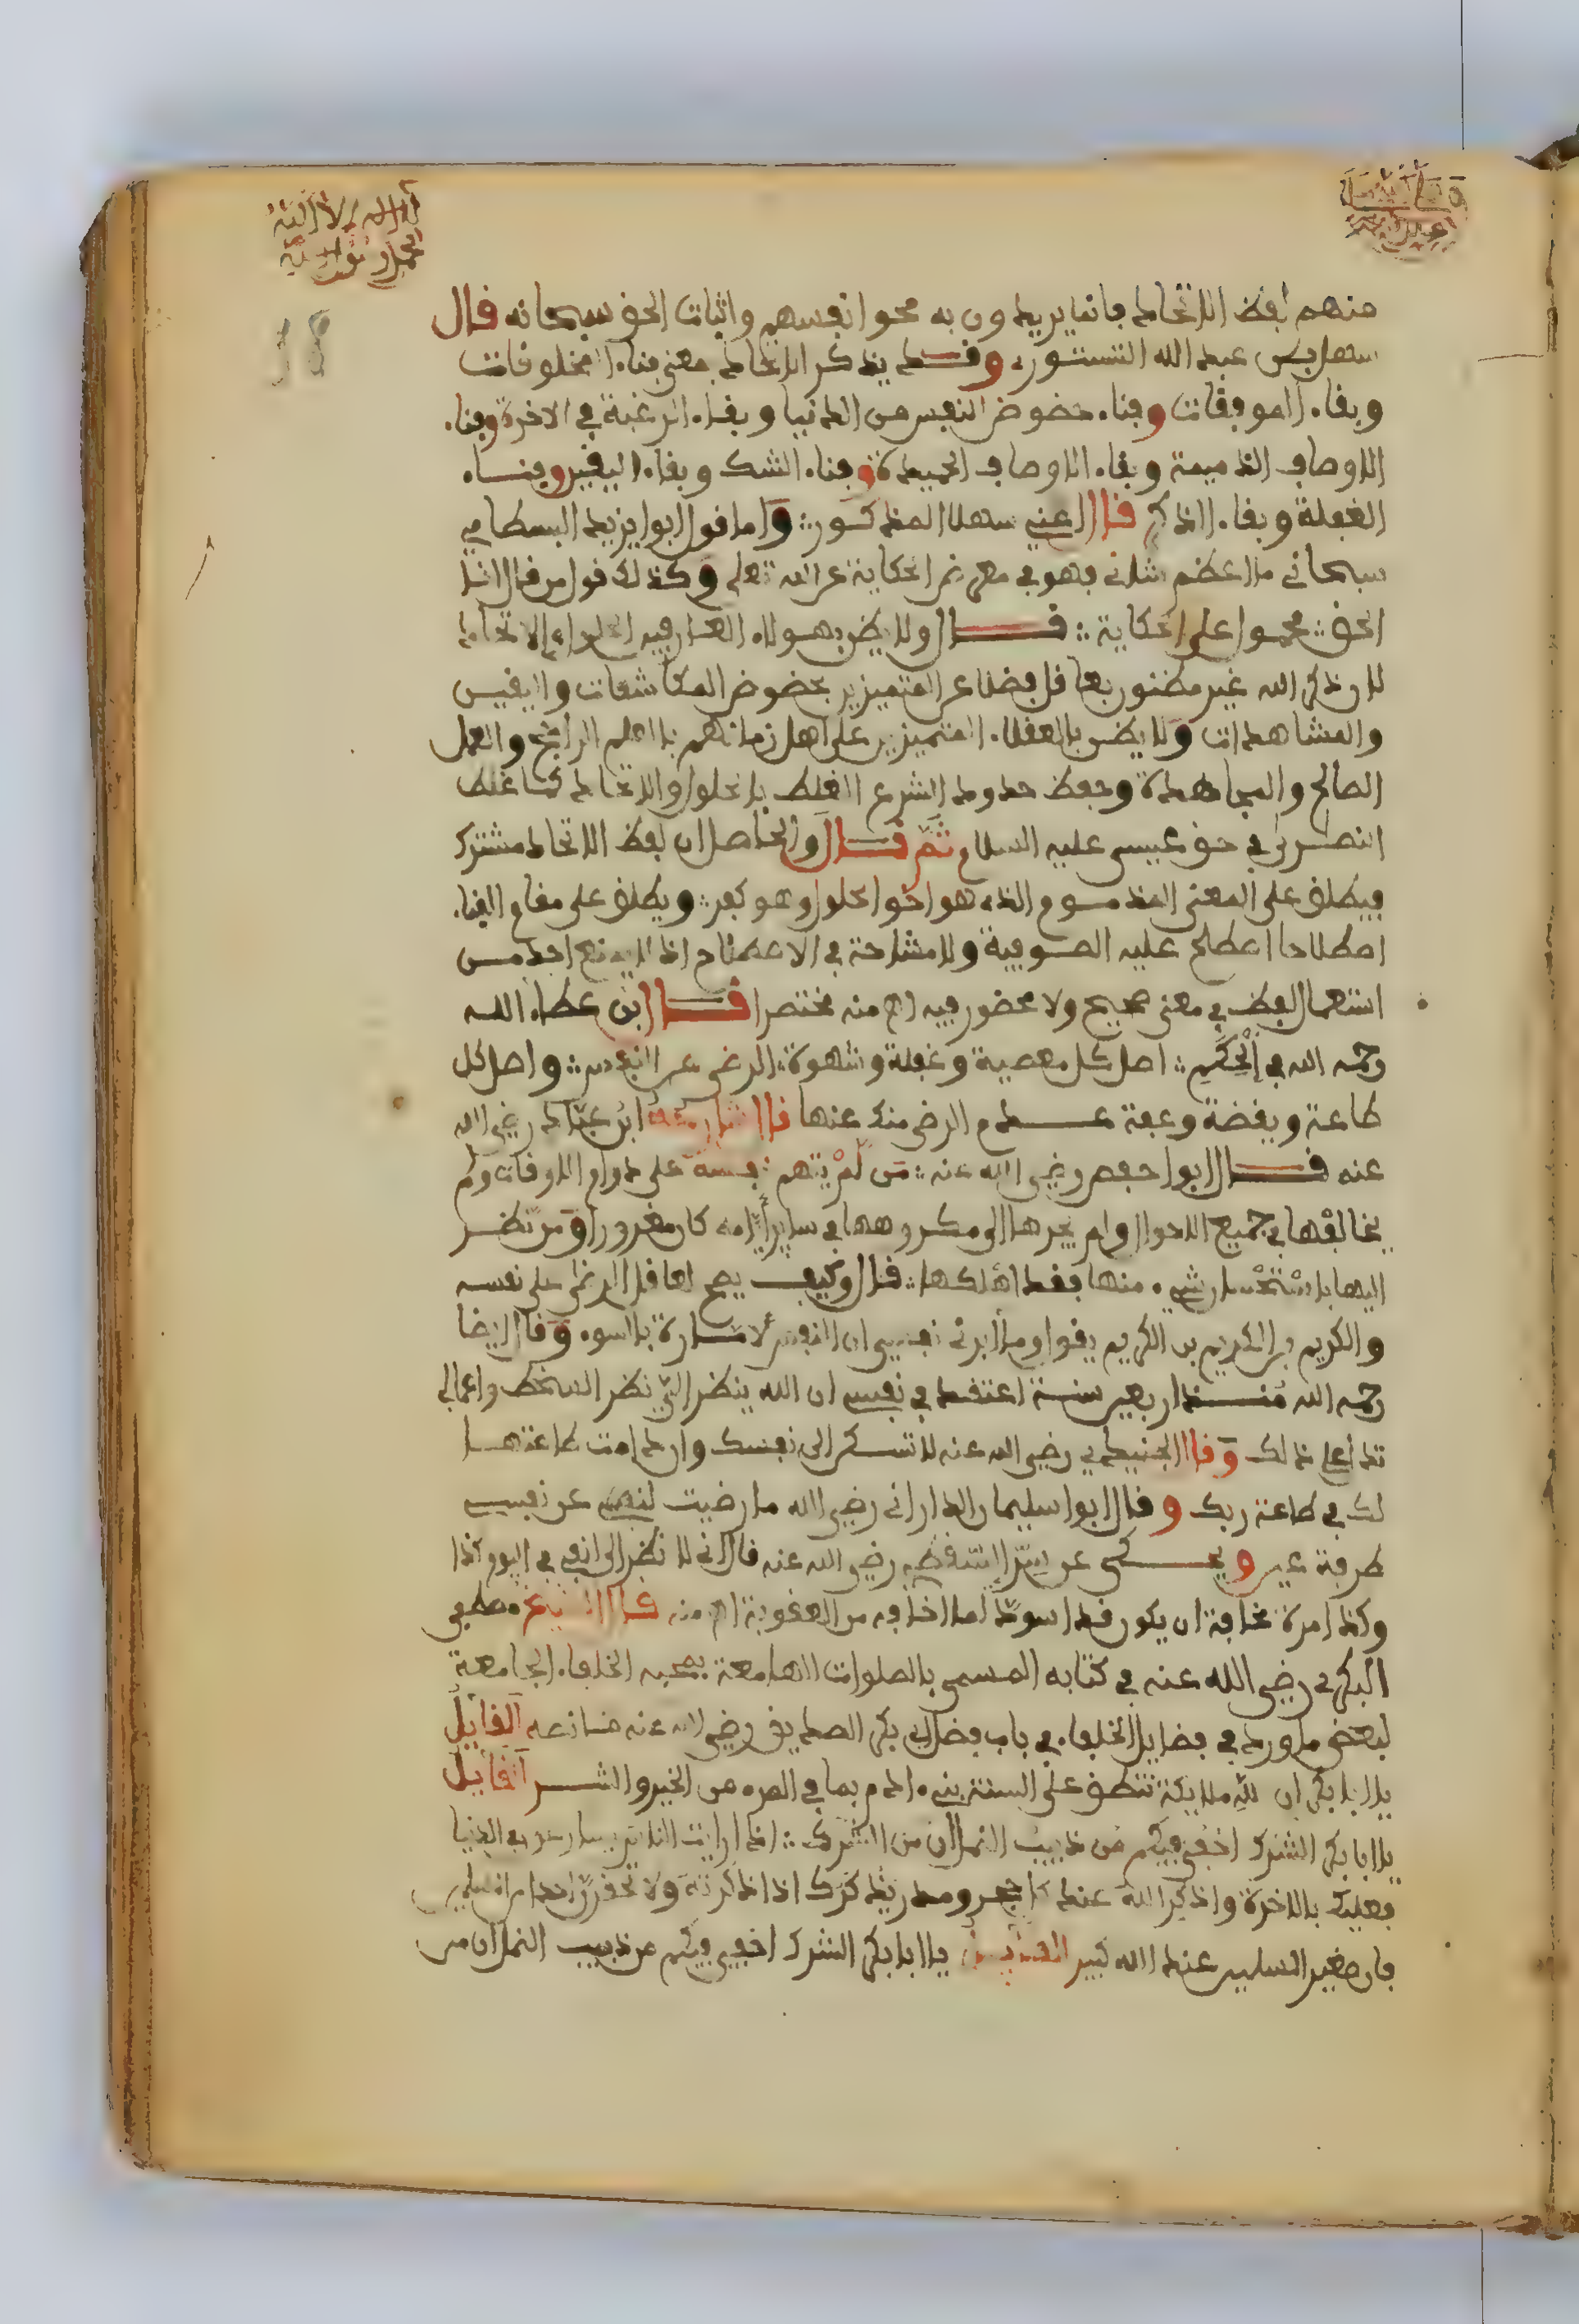 لا إله إلا الله
منهم لفظ الاتحاد فانما يريدون به محو انفسهم واثبات الحق سبحانه قال
سهل بن عبد الله التستوري وقد يذكر الاتحاد بمعنى فناء المخلوفات
وبقاء الموفقات وفناء حضوض النفس من الدنيا وبقاء الرغبة في الاخرة وفناء
الاوصاف الذميمة وبقاء الاوصاف الحميدة وفناء الشك وبقاء اليقين وفناء
الغفلة وبقاء الذكر قال اعني سهلا المذكور وأما قول ابوا يزيد البسطامي
سبحاني ما اعظم شاني فهو في معرض الحكاية عن الله تعلى وكذلك قول من قال انا
الحق محمول على الحكاية قال ولا يضن بهولاء العارفين الحلول والاتحاد
لان ذلك الله غير مظنون بعاقل فضلا عن المتميزين بخضوض المكاشفات واليقين
والمشاهدات ولا يضن بالعقلاء المتميزين على اهل زمانهم بالعلم الراجح والعمل
الصالح والمجاهدة وحفظ حدود الشرع الغلط بالحلول والاتحاد كما غلط
النصرى في حق عيسى عليه السلام ثم قال والحاصل ان لفظ الاتحاد مشترك
فيطلق على المعنى المذموم الذي هو اخو الحلول وهو كفر ويطلق على مقام الفناء
اصطلاحا اصطلح عليه الصوفية ولا مشاحة في الاصطلاح اذ لا يمنع احد من
استعمال لفظ في معنى صحيح ولا محضور فيه اه منه مختصرا قال ابن عطاء الله
رحمه الله في الحكم اصل كل معصية وغفلة وشهوة الرضى عن النفس واصل كل
طاعة ويقضة وعفة عدم الرضى منك عنها قال شارحه ابن عباد رضي الله
عنه قال ابوا حفص رضي الله عنه من لم يتهم نفسه على دوام الاوقات ولم
يخالفها في جميع الاحوال ولم يجرها الى مكروهها في ساير أيامه كان مغرورا ومن نظر
اليها باستحسان شيء منها فقد اهلكها قال وكيف يصح لعاقل الرضى على نفسه
والكريم بن الكريم بن الكريم يقول وما أبرئ نفسي ان النفس لامارة بالسوء وقال ايضا
رحمه الله منذ اربعين سنة اعتقد في نفسي ان الله ينظر الي نظر السخط واعمالي
تدل على ذلك وقال الجنيد رضي الله عنه لا تسكن الى نفسك وان دامت طاعتها
لك في طاعة ربك وقال ابوا سليمان الداراني رضي الله ما رضيت لنفس عن نفسي
طرفة عين ويحكى عن سر السقطي رضي الله عنه قال اني لا نظر الى انفي في اليوم كذا
وكذا مرة مخافة ان يكون قد اسود لما اخافه من العقوبة اه منه قال الشيخ مصطفى
البكري رضي الله عنه في كتابه المسمى بالصلوات الهامعة بمحبة الخلفاء الجامعة
لبعض ما ورد في فضايل الخلفاء في باب فضل ابي بكر الصديق رضي الله عنه ما نصه القايل
يا ابا بكر ان لله ملايكة تنطق على السنة بني ادم بما في المرء من الخير والشر القايل
يا ابا بكر الشرك اخفى فيكم من دبيب النمل ان من الشرك اذا رايت الناس يسارعون في الدنيا
فعليك بالاخرة واذكر الله عند كل حجر ومدر يذكرك اذا ذكرته ولا تحقرن احدا من المسلمين
فان صغير المسلمين عند الله كبير القايل يا ابا بكر الشرك اخفى فيكم من دبيب النمل ان من